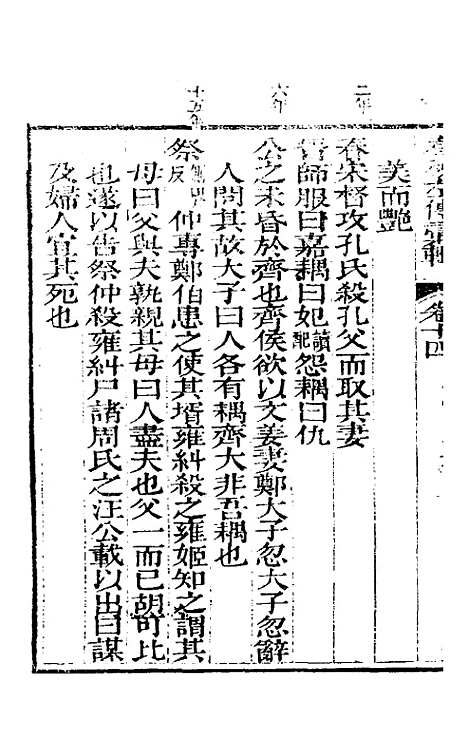 二年
六年
十五年
卷十四
美而艷
春宋督攻孔氏殺孔父而取其妻
晉師服曰嘉耦曰妃讀配怨耦曰仇
公之未昏於齊也齊侯欲以文姜妻鄭大子忽大子忽辭
人問其故大子曰人各有耦齊大非吾耦也
祭仲專鄭伯患之使其壻雍糾殺之雍姬知之謂其
母曰父與夫孰親其母曰人盡夫也父一而已胡可比
也遂以告祭仲殺雍糾尸諸周氏之汪公載以出曰謀
及婦人宜其死也